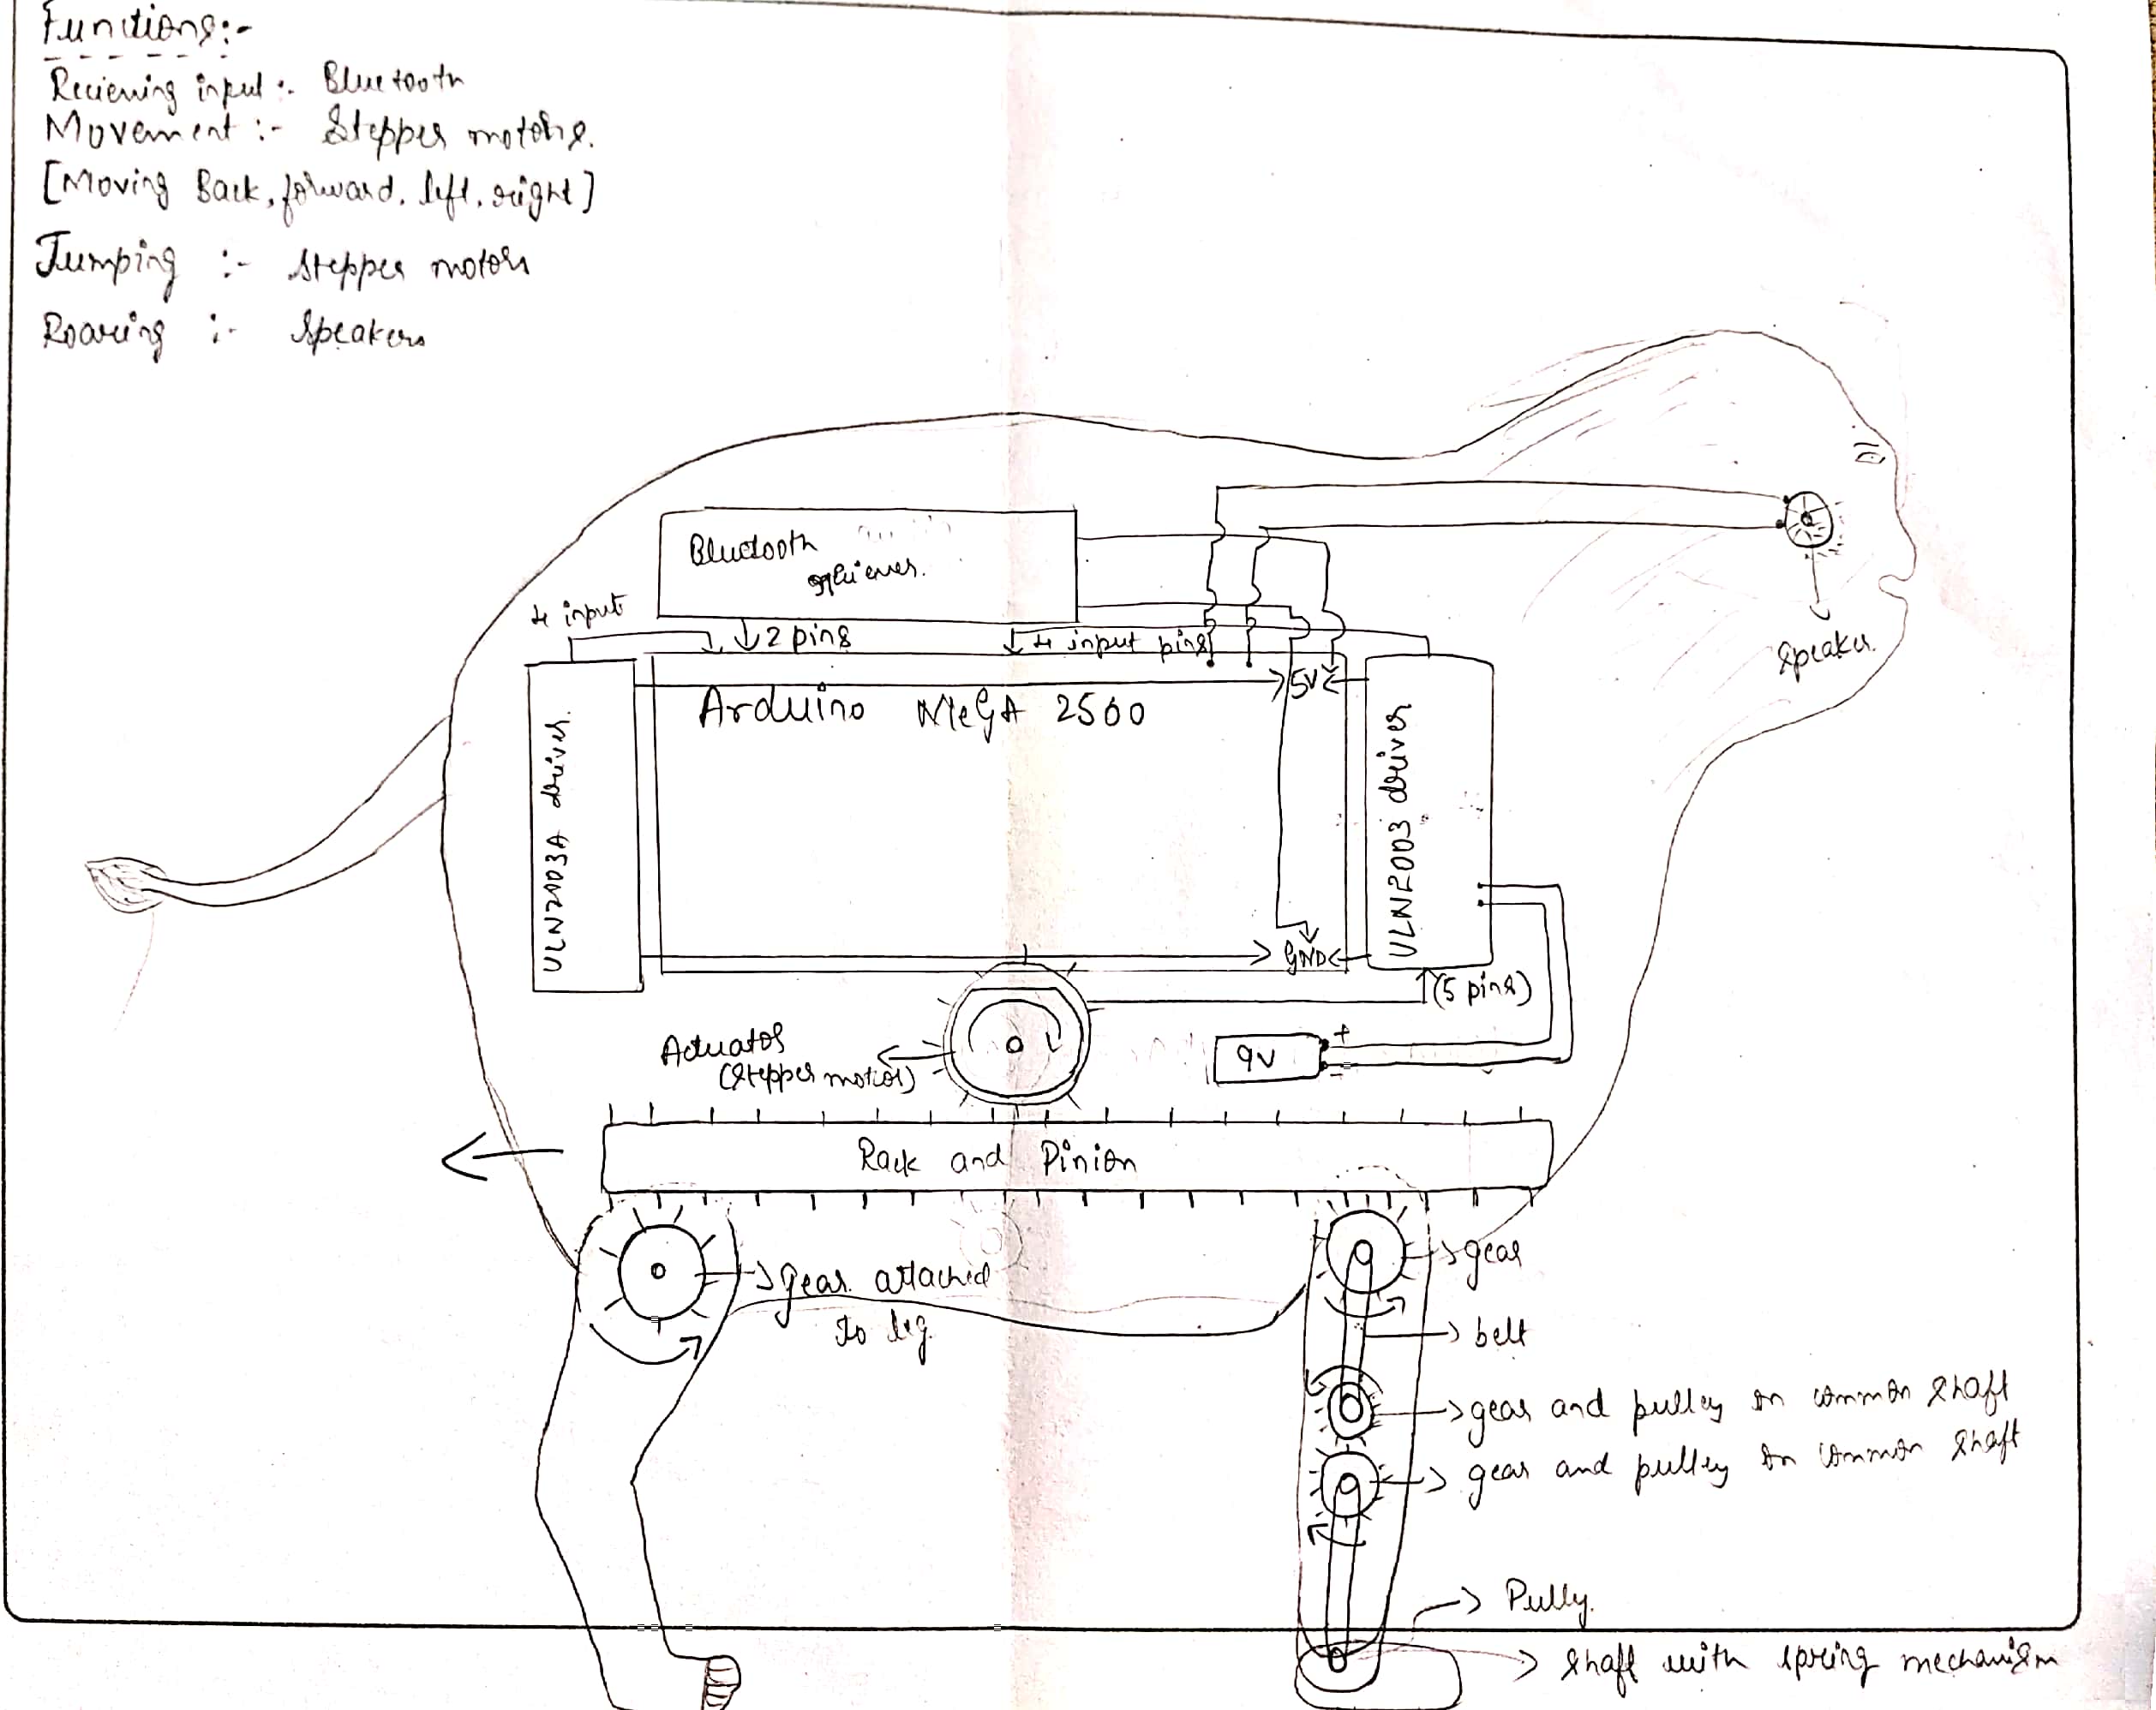 Functions:-
Recieving input :- Bluetooth
Movement :- Stepper motors.
[Moving Back, forward, left, right]
Jumping :- Stepper motors
Roaring :- Speakers
Bluetooth
reciever.
4 input
2 pins
4 input pins
Speaker.
5V
Arduino MEGA 2560
ULN2003A driver
ULN2003 driver
GND
(5 pins)
Actuator
(Stepper motor)
9V
+
-
Rack and Pinion
gear attached
to leg.
gear
belt
gear and pulley on common shaft
gear and pulley on common shaft
Pully.
Shaft with spring mechanism